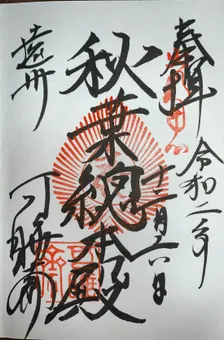 奉拝
令和二年
十一月二八日
秋葉總本殿
遠州
可睡斎